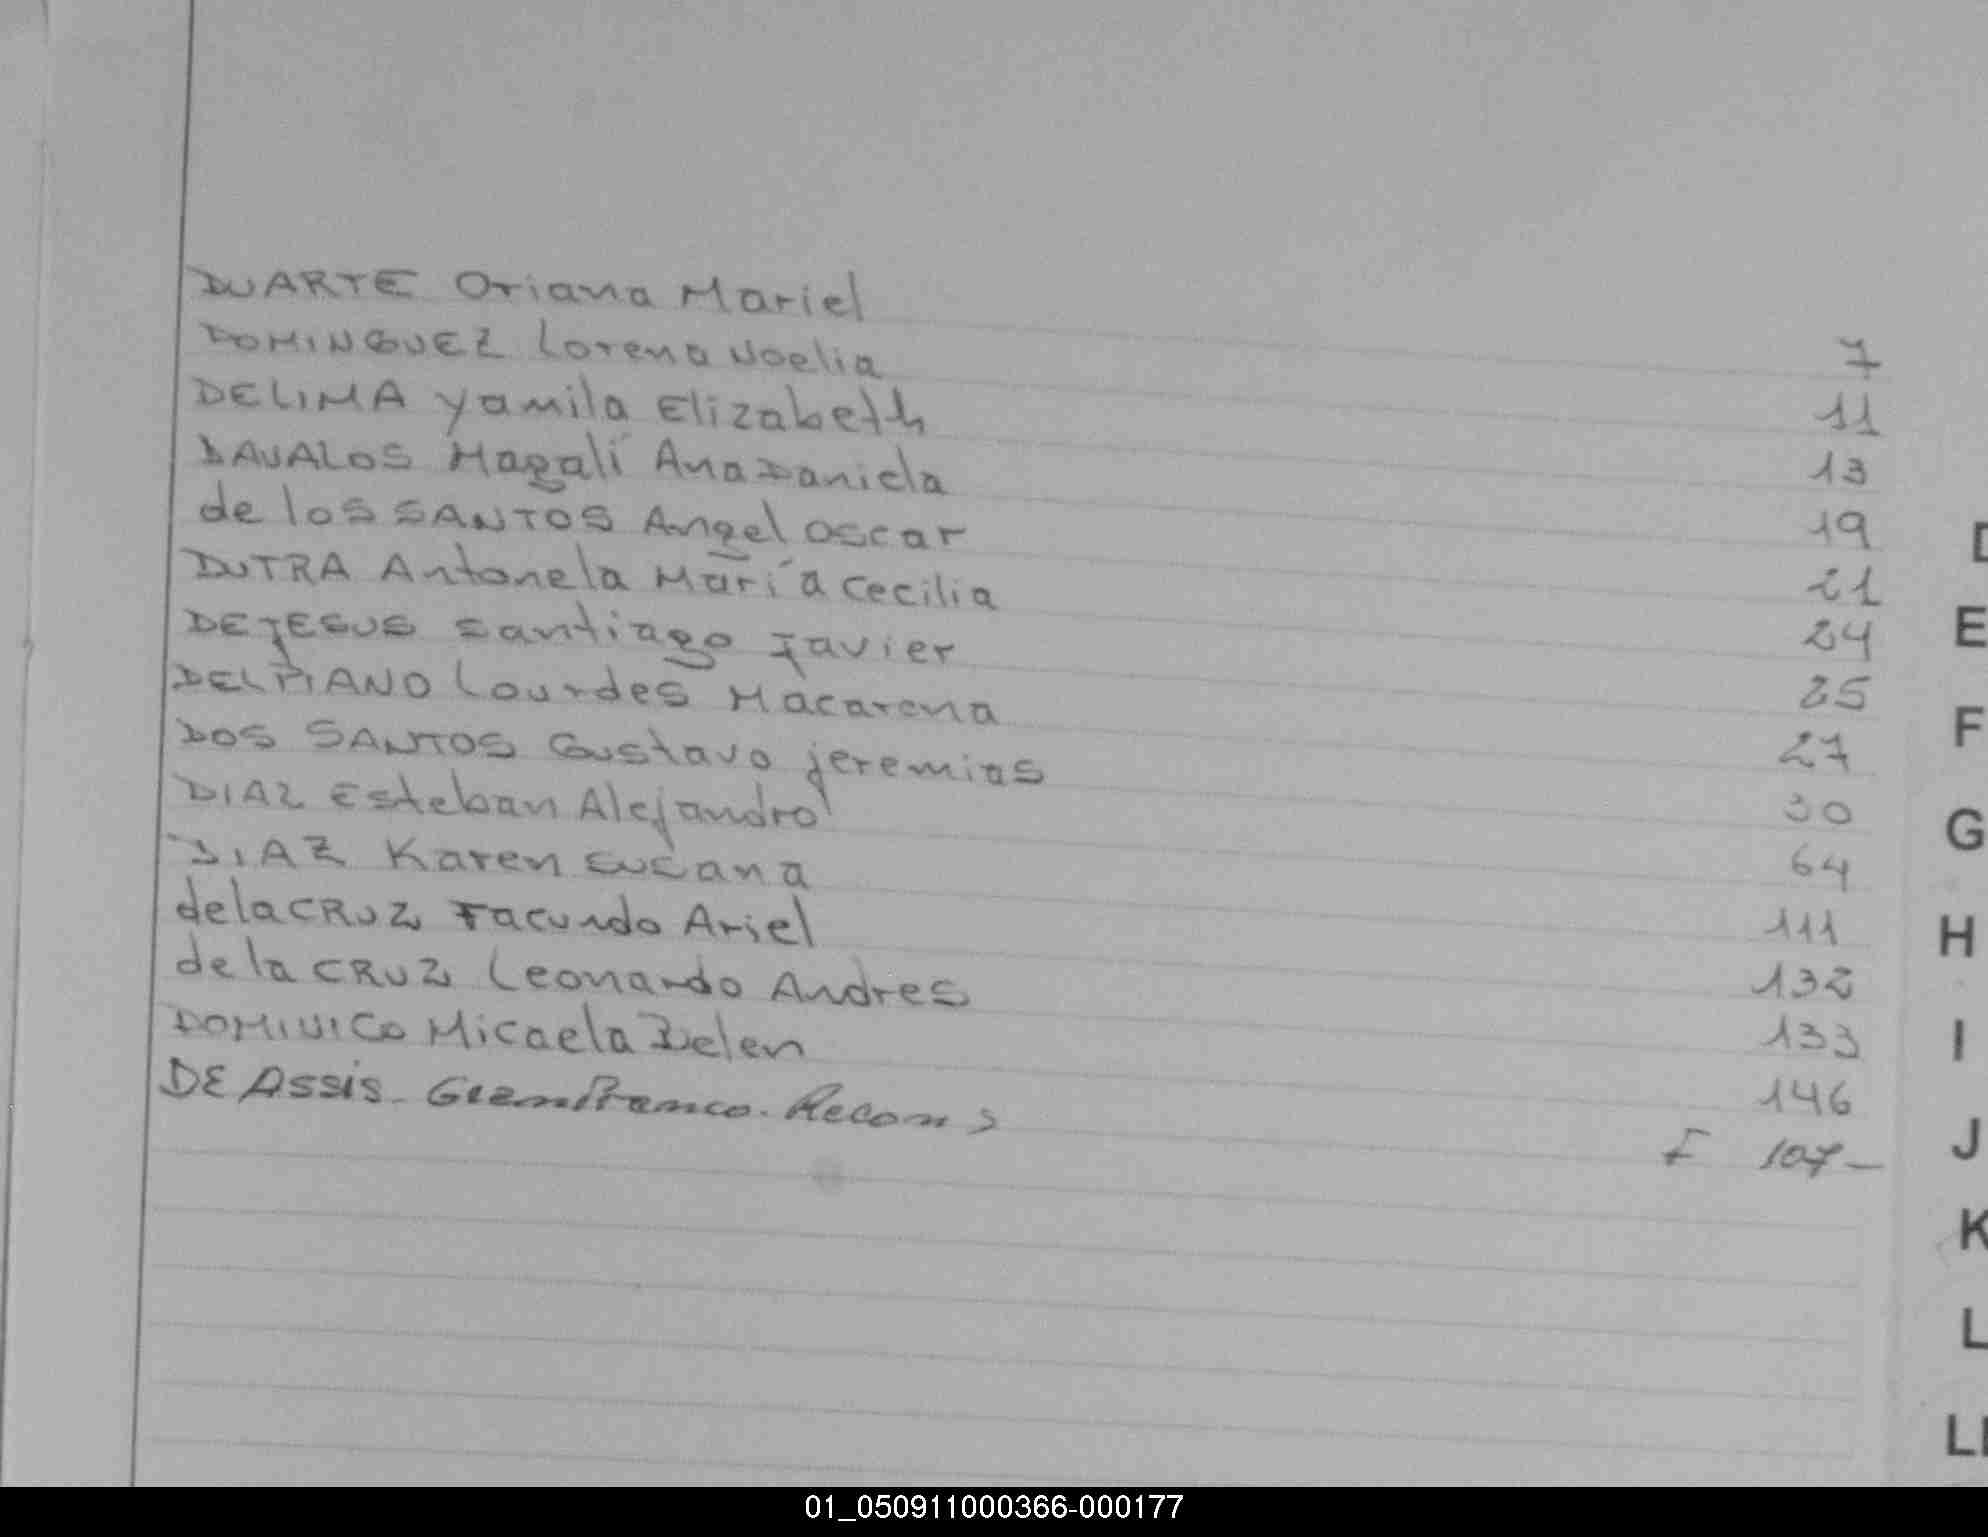 DUARTE Oriana Mariel 7
DOMINGUEZ Lorena Noelia 11
DELIMA Yamila Elizabeth 13
DAVALOS Magalí Ana Daniela 19
de los SANTOS Angel oscar 21
DUTRA Antonela María Cecilia 24
DEJESUS Santiago Javier 25
DELPIANO Lourdes Macarena 27
DOS SANTOS Gustavo jeremias 30
DIAZ Esteban Alejandro 64
DIAZ Karen Susana 111
dela CRUZ Facundo Ariel 132
de la CRUZ Leonardo Andres 133
DOMINICO Micaela Belen 146
DE Assis - Gianfranco. Recon I 107-
D
E
F
G
H
I
J
K
L
Ll
01_050911000366-000177